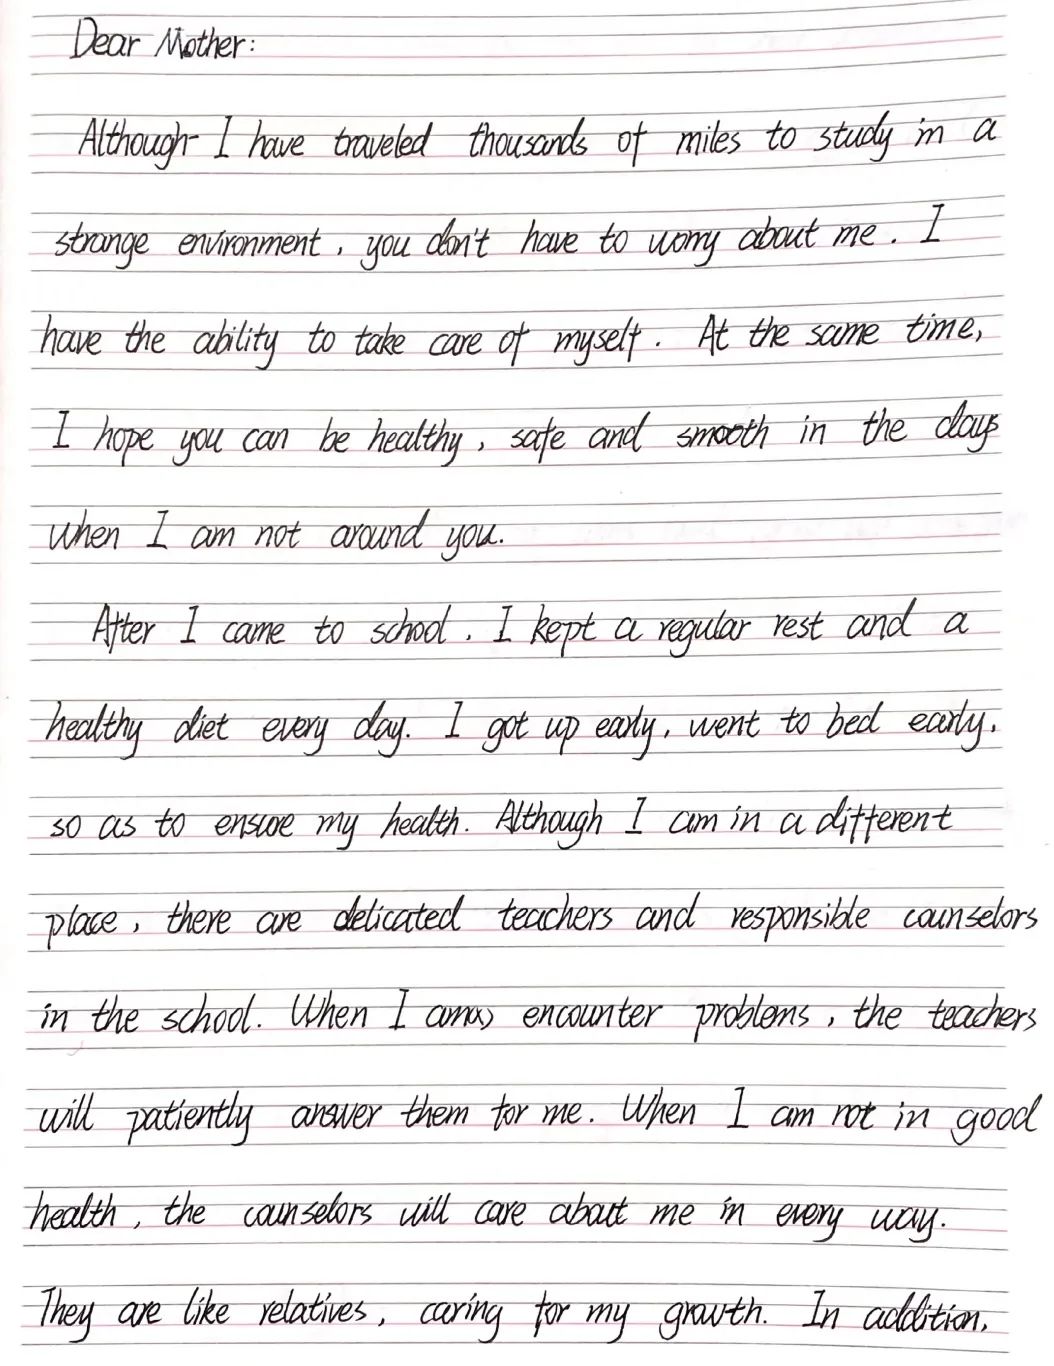 Dear Mother:
Although I have traveled thousands of miles to study in a
strange environment, you don't have to worry about me. I
have the ability to take care of myself. At the same time,
I hope you can be healthy, safe and smooth in the days
when I am not around you.
After I came to school, I kept a regular rest and a
healthy diet every day. I got up early, went to bed early,
so as to ensure my health. Although I am in a different
place, there are delicated teachers and responsible counselors
in the school. When I encounter problems, the teachers
will patiently answer them for me. When I am not in good
health, the counselors will care about me in every way.
They are like relatives, caring for my growth. In addition,